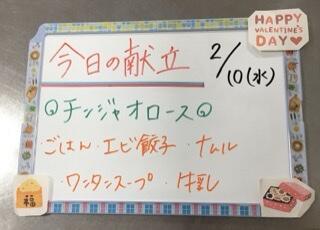 HAPPY
VALENTINE'S
DAY
今日の献立
2/10(水)
チンジャオロース
ごはん・エビ餃子・ナムル
・ワンタンスープ・牛乳
福